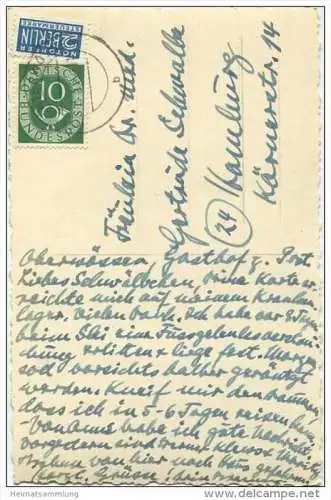 NOTOPFER
2 BERLIN
STEUERMARKE
DEUTSCHE
BUNDESPOST
10
Fräulein Dr. med.
Gertrude Schwalbe
(24) Hamburg
Körnerstr. 14
Oberwössen, Gasthof z. Post
Liebes Schwälbchen, Deine Karte er-
reichte mich auf meinem Kranken-
lager. Vielen Dank. Ich habe vor 8 Tagen
beim Ski eine Fussgelenksverstau-
chung erlitten & liege fest.
sod vorsichts halber geröntgt
werden. Kneif mir den Daumen
dass ich in 5-6 Tagen reisen kann
habe ich gute Nachricht
vorgestern sind
von hier nach
Grüsse
Heimatsammlung
www.delcampe.net